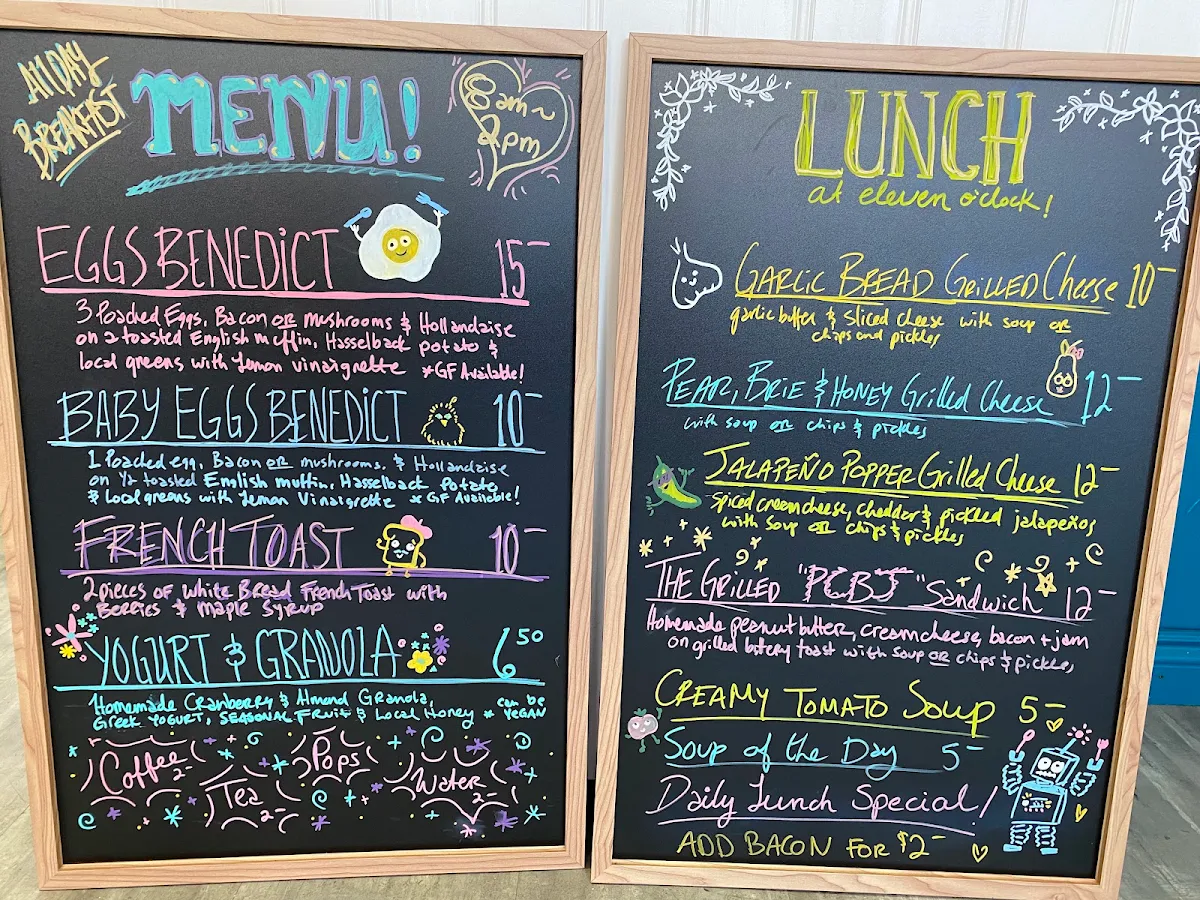 All DAY
BREAKFAST
MENU!
8am~
2pm
EGGS BENEDICT 15-
3 Poached Eggs, Bacon OR mushrooms & Hollandaise
on a toasted English muffin, Hasselback potato &
local greens with Lemon vinaigrette *GF Available!
BABY EGGS BENEDICT 10-
1 Poached egg, Bacon OR mushrooms, & Hollandaise
on 1/2 toasted English muffin, Hasselback Potato,
& Local greens with Lemon Vinaigrette *GF Available!
FRENCH TOAST 10-
2 pieces of white Bread French Toast with
Berries & Maple Syrup
YOGURT & GRANOLA 6.50
Homemade Cranberry & Almond Granola,
Greek YOGURT, SEASONAL Fruit & Local Honey * can be
VEGAN
Coffee
2-
Tea
2-
Pops
Water
2-
LUNCH
at eleven o'clock!
GARLIC BREAD GRILLED Cheese 10-
garlic butter & sliced cheese with soup OR
chips and pickles
PEAR, BRIE & HONEY Grilled Cheese 12-
with soup OR chips & pickles
JALAPEÑO POPPER Grilled Cheese 12-
spiced cream cheese, cheddar & pickled jalapeños,
with soup OR chips & pickles
THE GRILLED "PCBJ" Sandwich 12-
Homemade peanut butter, cream cheese, bacon + jam
on grilled butery toast with soup OR chips & pickles,
CREAMY TOMATO SOUP 5-
Soup of the Day 5-
Daily Lunch Special!
ADD BACON FOR $2-